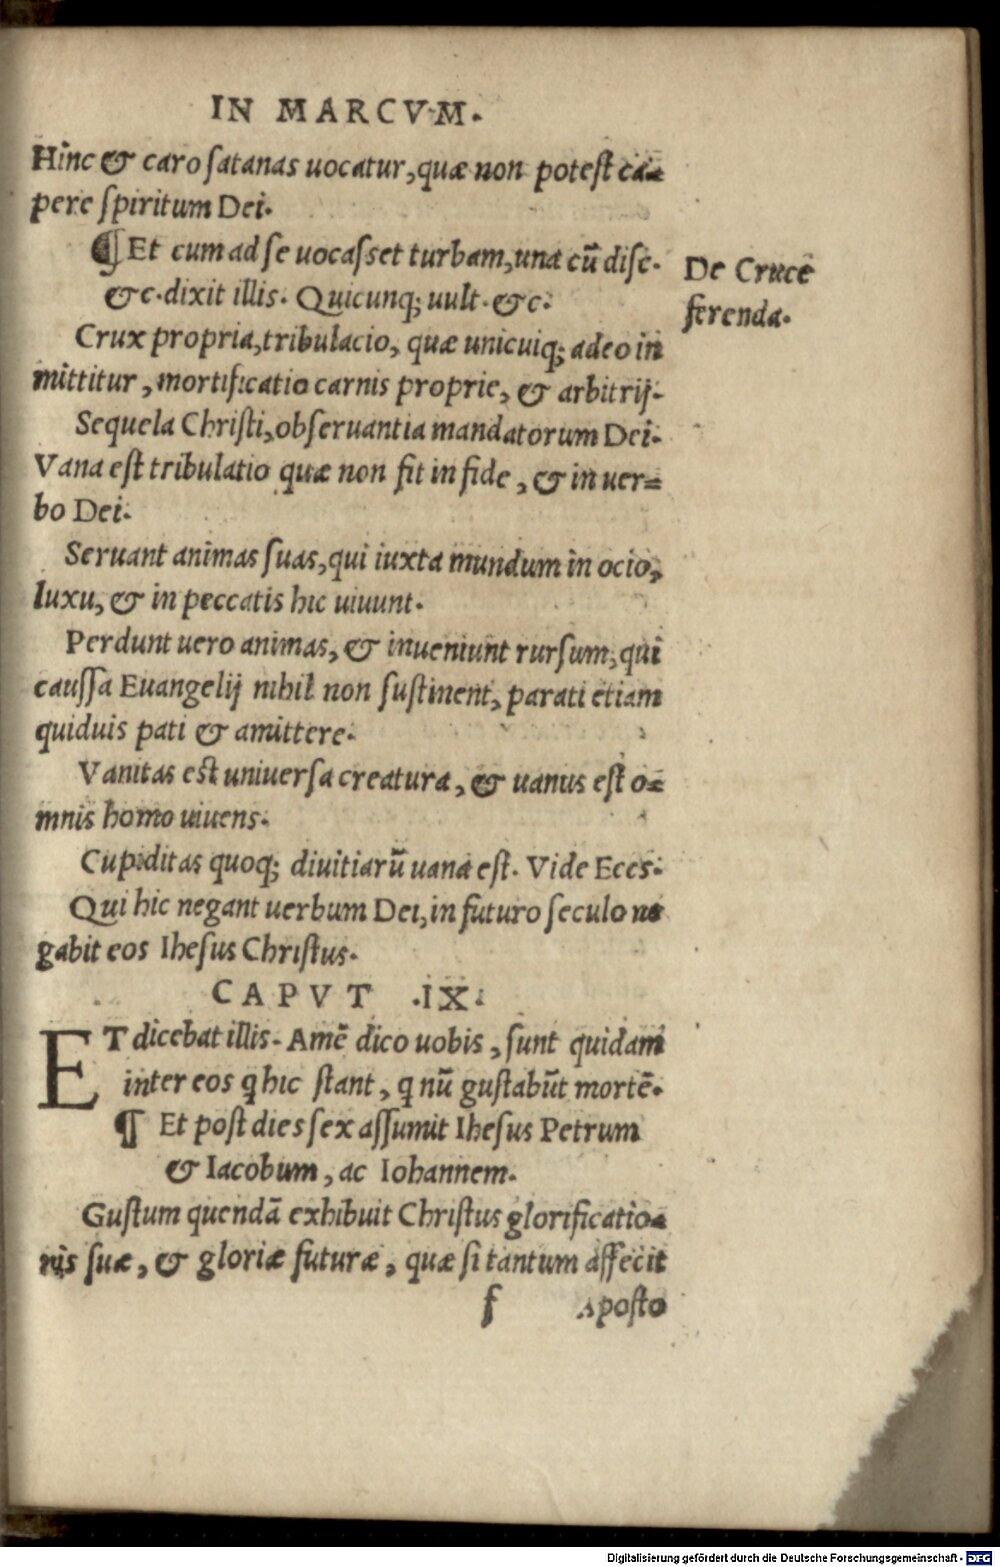 IN MARCVM.
Hinc & caro ſatanas uocatur, quæ non poteſt ca=
pere ſpiritum Dei.
¶ Et cum ad ſe uocaſſet turbam, una cū diſc.
&c. dixit illis. Quicunq; uult. &c.
De Cruce
ferenda.
Crux propria, tribulacio, quæ unicuiq; a deo in
mittitur, mortificatio carnis proprie, & arbitrij.
Sequela Chriſti, obſeruantia mandatorum Dei.
Vana eſt tribulatio quæ non fit in fide, & in uer=
bo Dei.
Seruant animas ſuas, qui iuxta mundum in ocio,
luxu, & in peccatis hic uiuunt.
Perdunt uero animas, & inueniunt rurſum, qui
cauſſa Euangelij nihil non ſuſtinent, parati etiam
quiduis pati & amittere.
Vanitas eſt uniuerſa creatura, & uanus eſt o=
mnis homo uiuens.
Cupiditas quoq; diuitiarū uana eſt. Vide Eces.
Qui hic negant uerbum Dei, in futuro ſeculo ne
gabit eos Iheſus Chriſtus.
CAPVT .IX.
ET dicebat illis. Amē dico uobis, ſunt quidam
inter eos q hic ſtant, q nū guſtabūt mortē.
¶ Et poſt dies ſex aſſumit Iheſus Petrum
& Iacobum, ac Iohannem.
Guſtum quendā exhibuit Chriſtus glorificatio=
nis ſuæ, & gloriæ futuræ, quæ ſi tantum affecit
f Apoſto
Digitalisierung gefördert durch die Deutsche Forschungsgemeinschaft - DFG